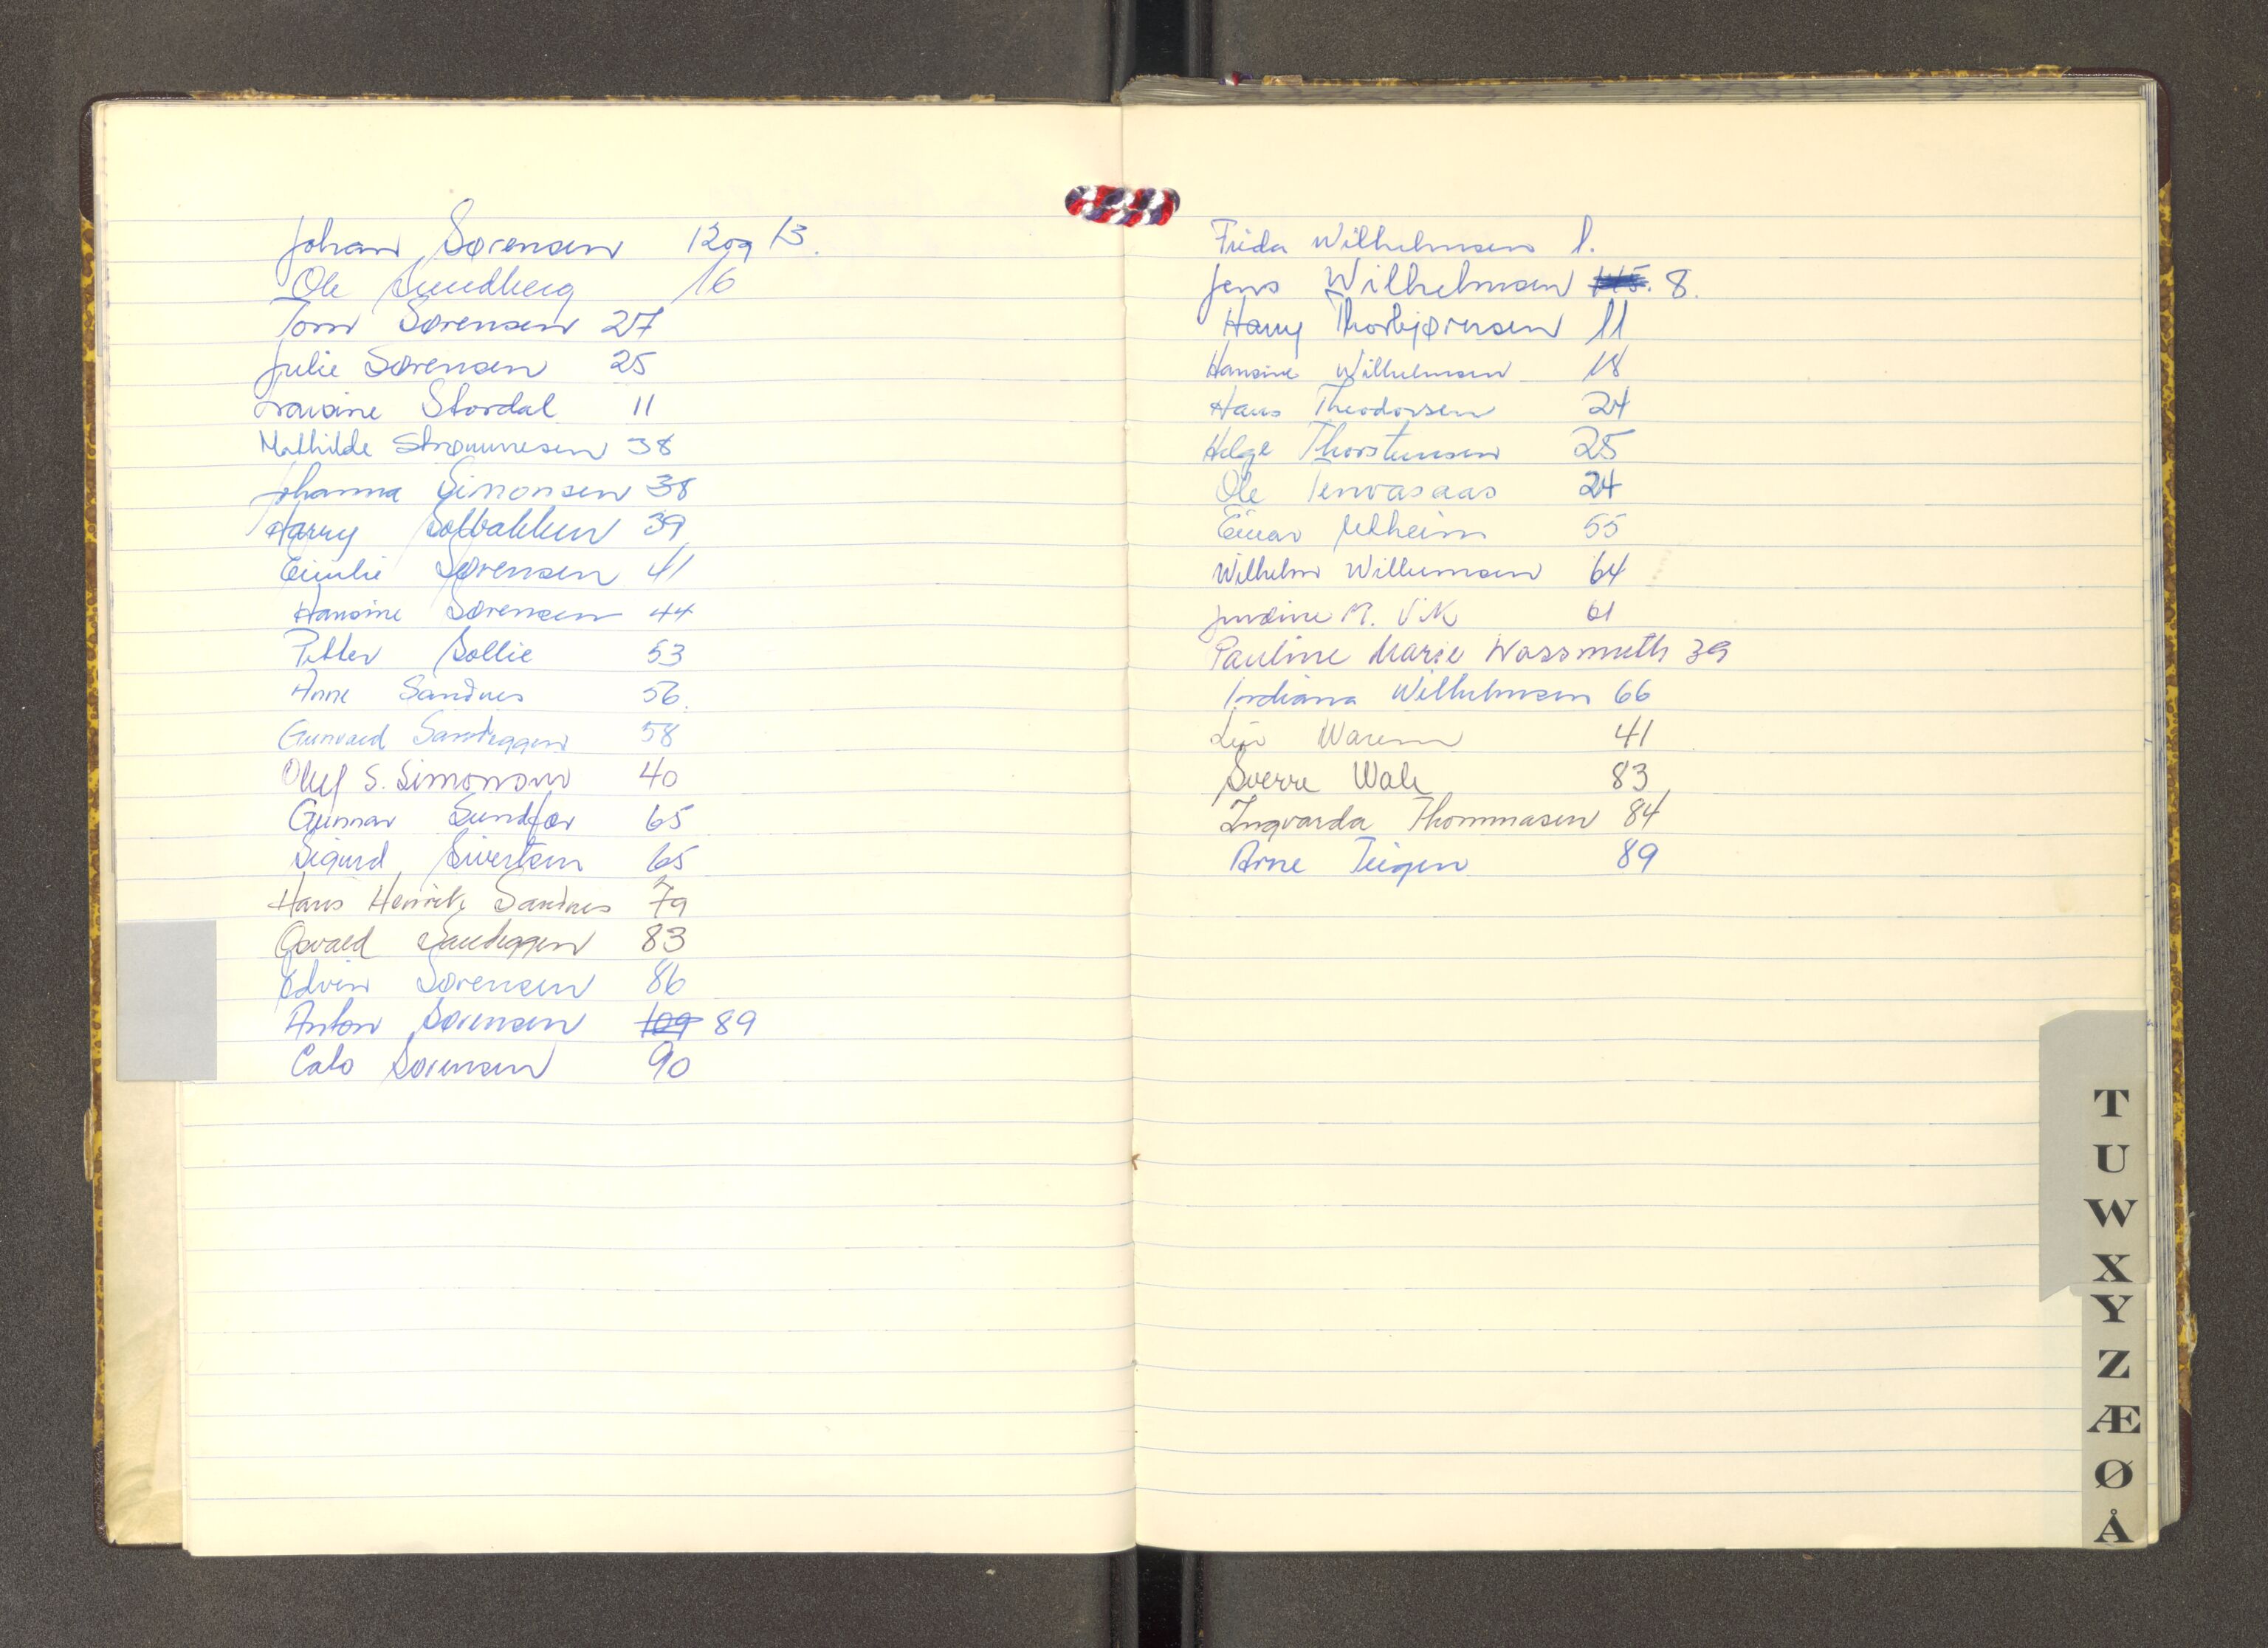 Johan Sørensen 12 og 13.
Ole Sundberg 16
Tom Sørensen 27
Julie Sørensen 25
Stordal 11
Mathilde Strømmesen 38
Johanna Simonsen 38
Harry Solbakken 39
Emilie Sørensen 41
Hansine Sørensen 44
Petter Sollie 53
Anne Sandnes 56.
Gunvald Sandeggen 58
Oluf S. Simonsen 40
Gunnar Sundfør 65
Sigurd Sivertsen 65
Hans Henrik Sandnes 79
Osvald Sandeggen 83
Edvin Sørensen 86
Anton Sørensen 109 89
Calo Sørensen 90
Frida Wilhelmsen 1.
Jens Wilhelmsen 115. 8.
Harry Thorbjørnsen 11
Hansine Wilhelmsen 18
Hans Theodorsen 24
Helge Thorstensen 25
Ole 24
Einar Utheim 55
Wilhelm Willumsen 64
M. Vik 61
Pauline Marie Wassmuth 39
Indiana Wilhelmsen 66
Waren 41
Sverre Wale 83
Ingvarda Thommasen 84
Arne Teigen 89
T
U
W
X
Y
Z
Æ
Ø
Å